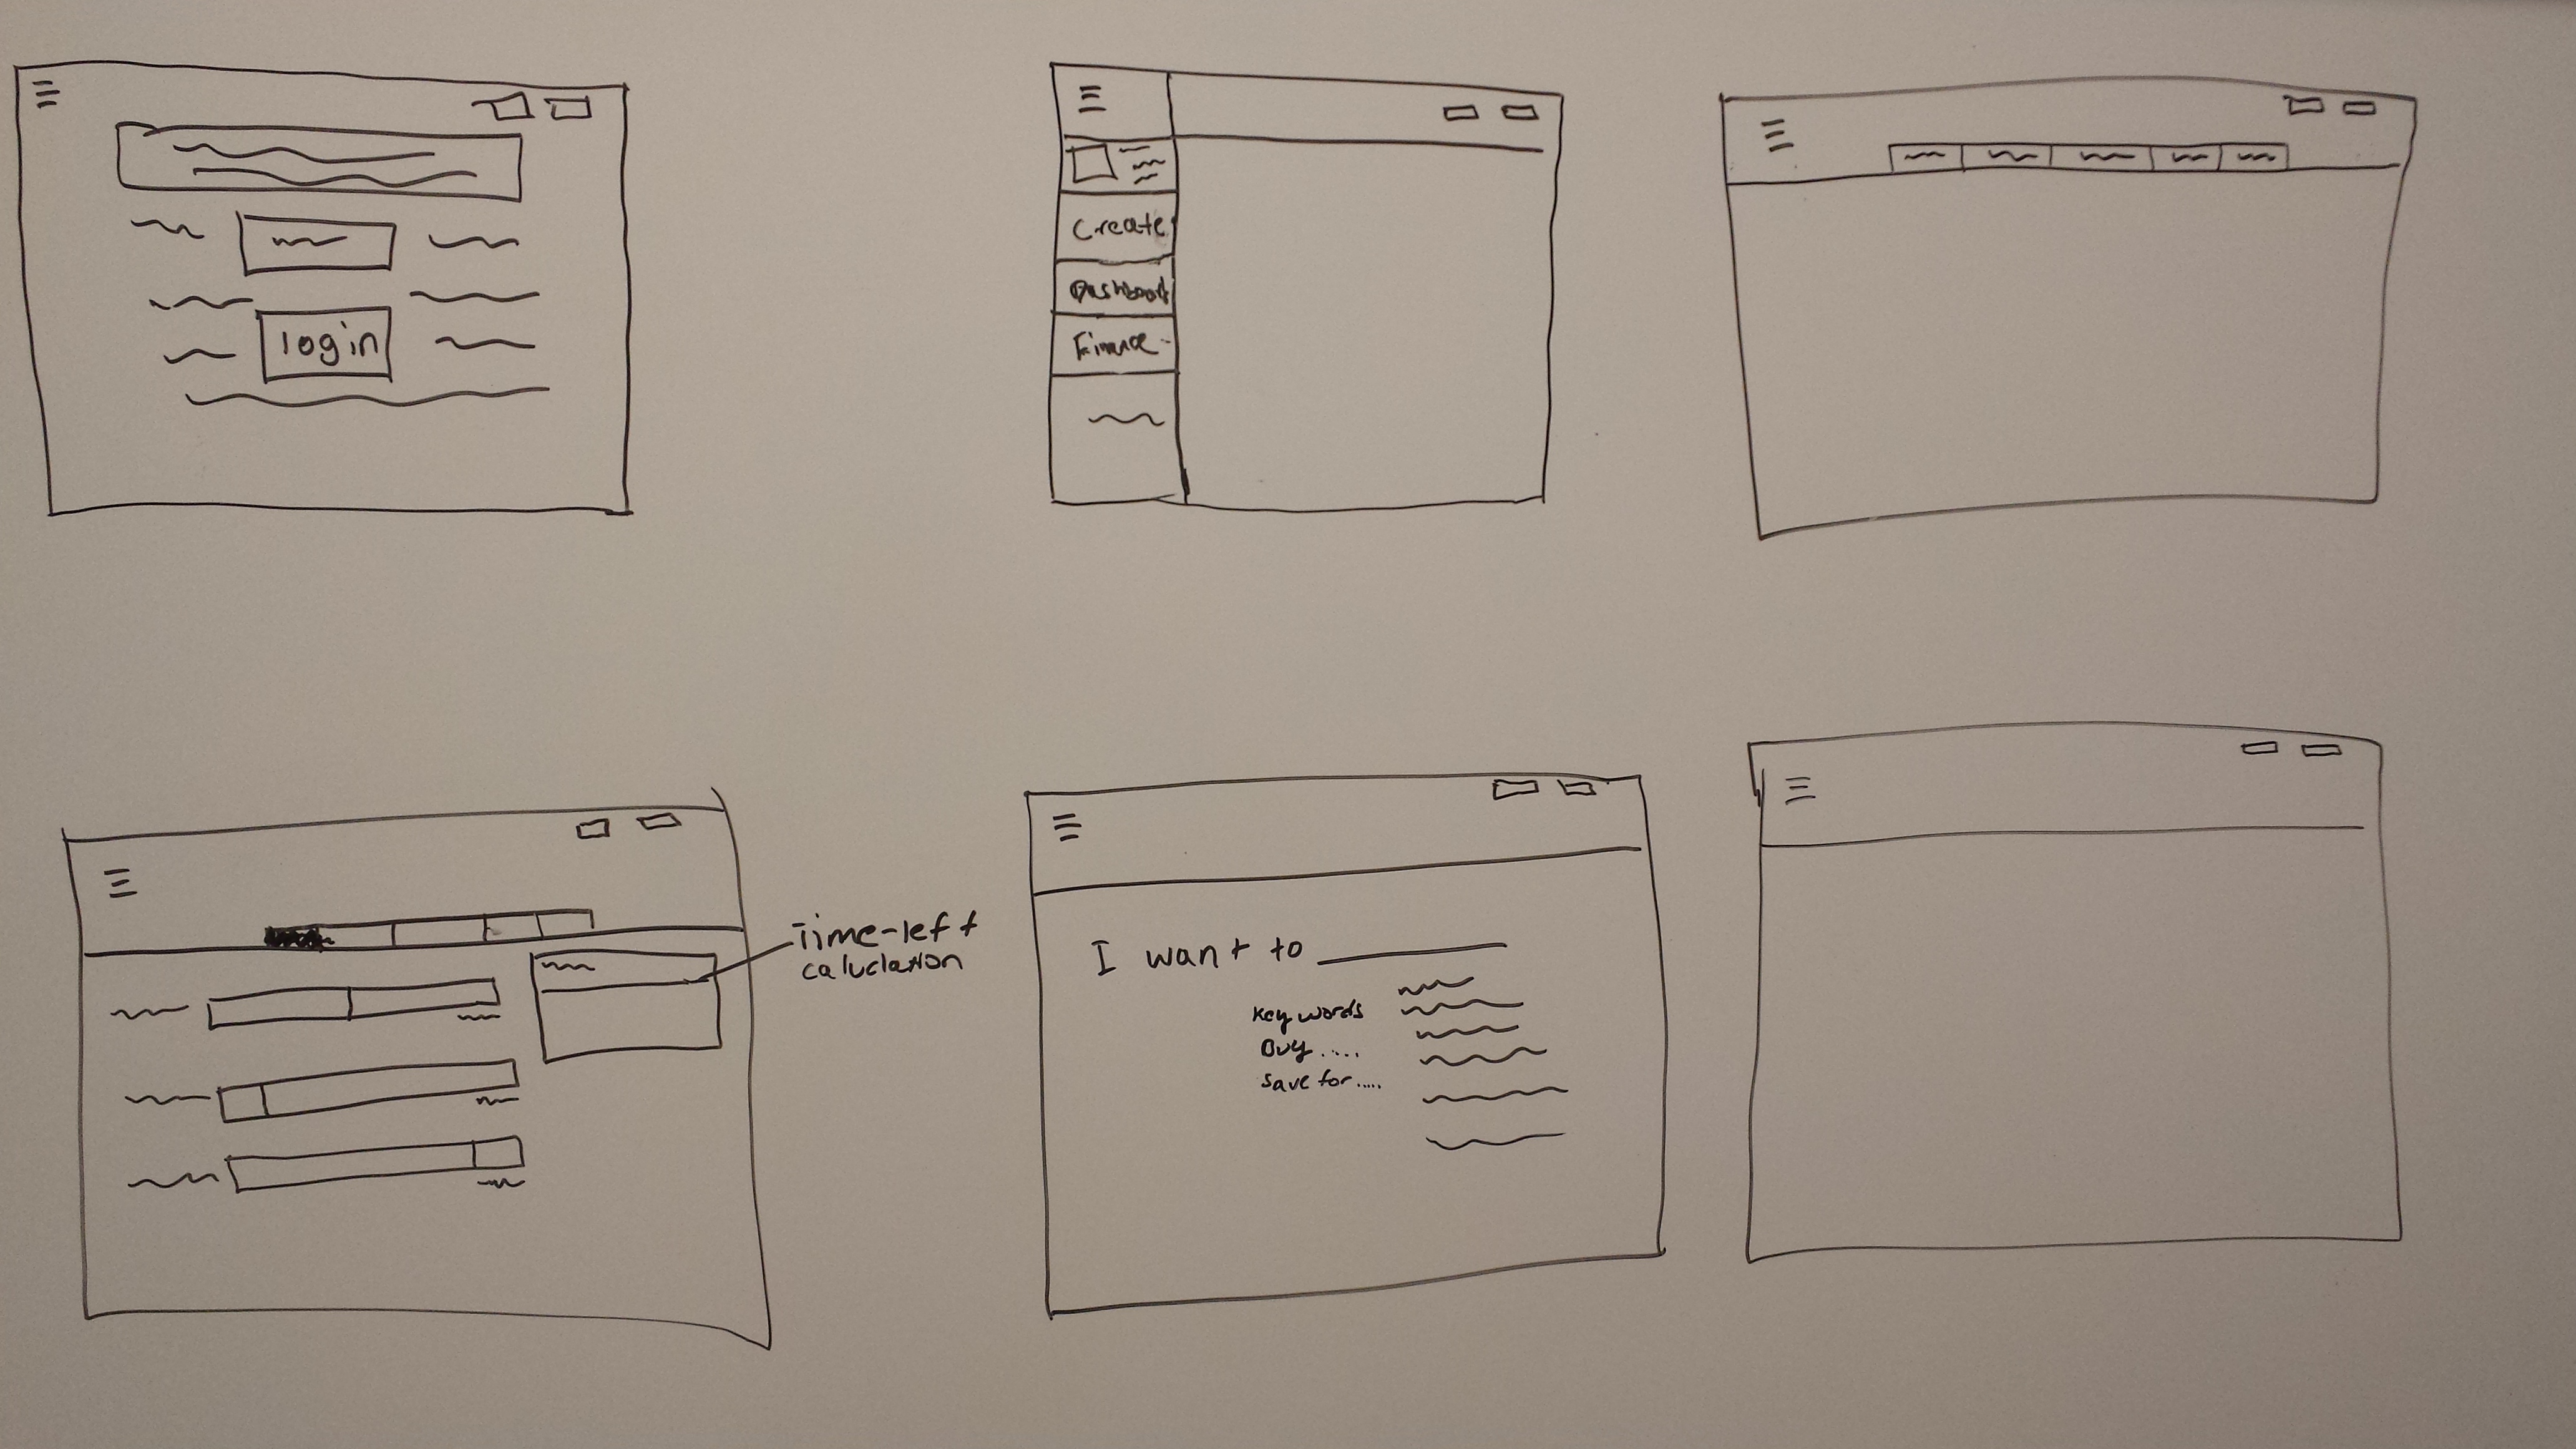 login
Create
Dashboard
Finance
Time-left
caluclation
I want to
Key words
Buy .....
Save for .....